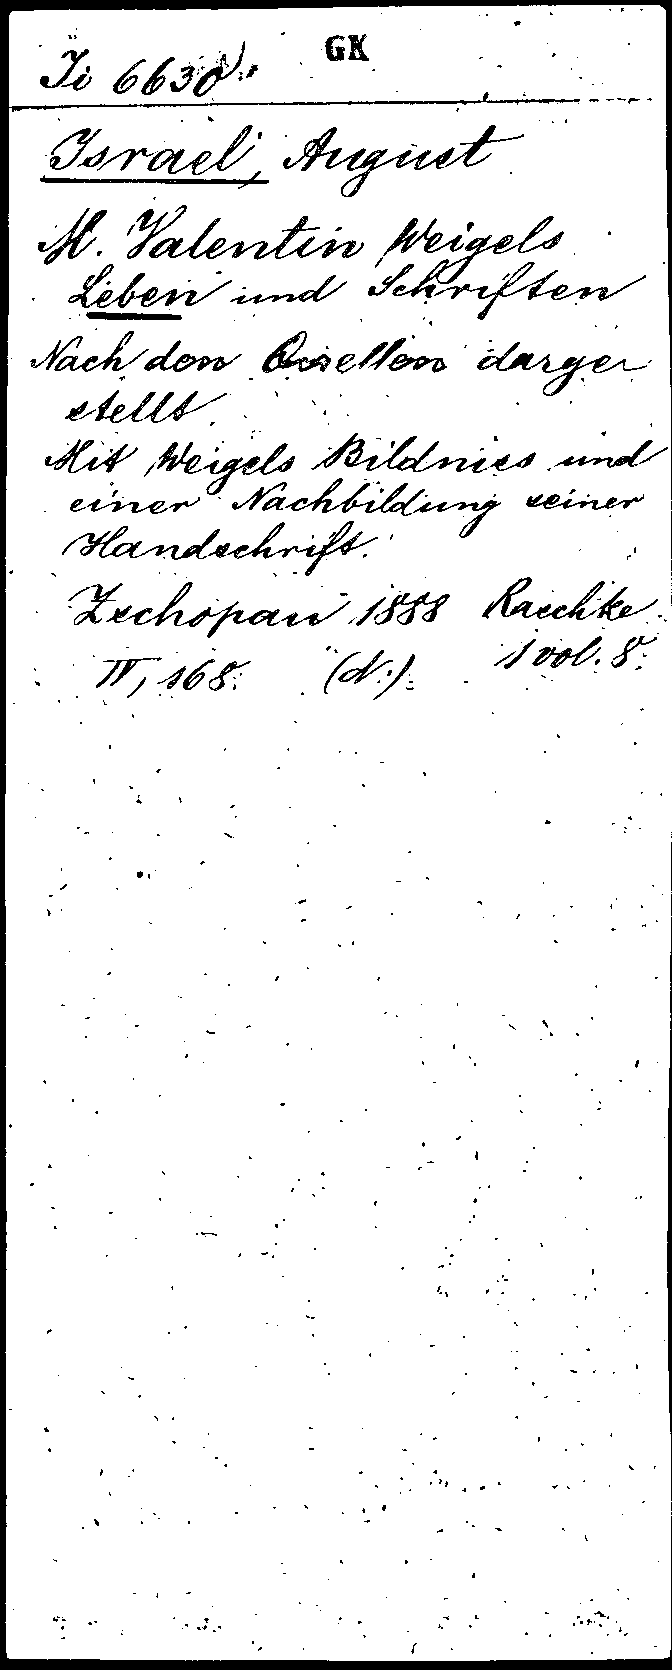 Ji 6630
GK
Israel, August
M. Valentin Weigels
Leben und Schriften
Nach den Quellen darge-
stellt.
Mit Weigels Bildniss und
einer Nachbildung seiner
Handschrift.
Zschopau 1888 Raschke.
IV, 168. (N.) 1 vol. 8.